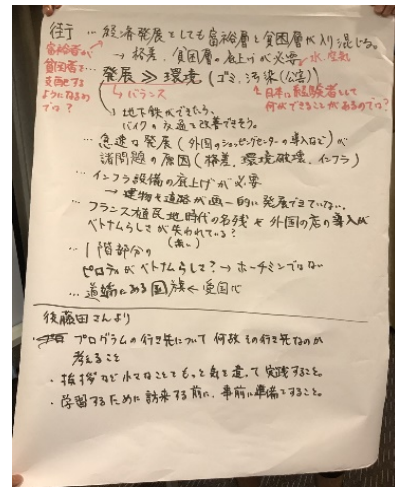 街 … 経済発展としても富裕層と貧困層が入り混じる。
→ 格差、貧困層の底上げが必要
富裕者が
貧困者を
支配する
ようになるわ
では?
水、空気
… 発展 ≫ 環境 (ゴミ、汚染(公害))
↳ バランス
日本は経験者として
何ができることがあるのでは?
↳ 地下鉄ができたら、
バイクの交通も改善できそう。
… 急速な発展 (外国のショッピングセンターの導入など)が
諸問題の原因 (格差、環境破壊、インフラ)
… インフラ設備の底上げが必要
→ 建物も道路が画一的に発展できていない。
… フランス植民地時代の名残や外国の店の導入が
ベトナムらしさが失われている?
… 1階部分の
ピロティがベトナムらしさ? → ホーチミンではない
… 道端にある国旗 ← 愛国心
後藤田さんより
プログラムの行き先について何故その行き先なのか
考えること
・挨拶など小さなことでもっと気を遣って実践すること。
・学習するために訪来する前に、事前に準備をすること。